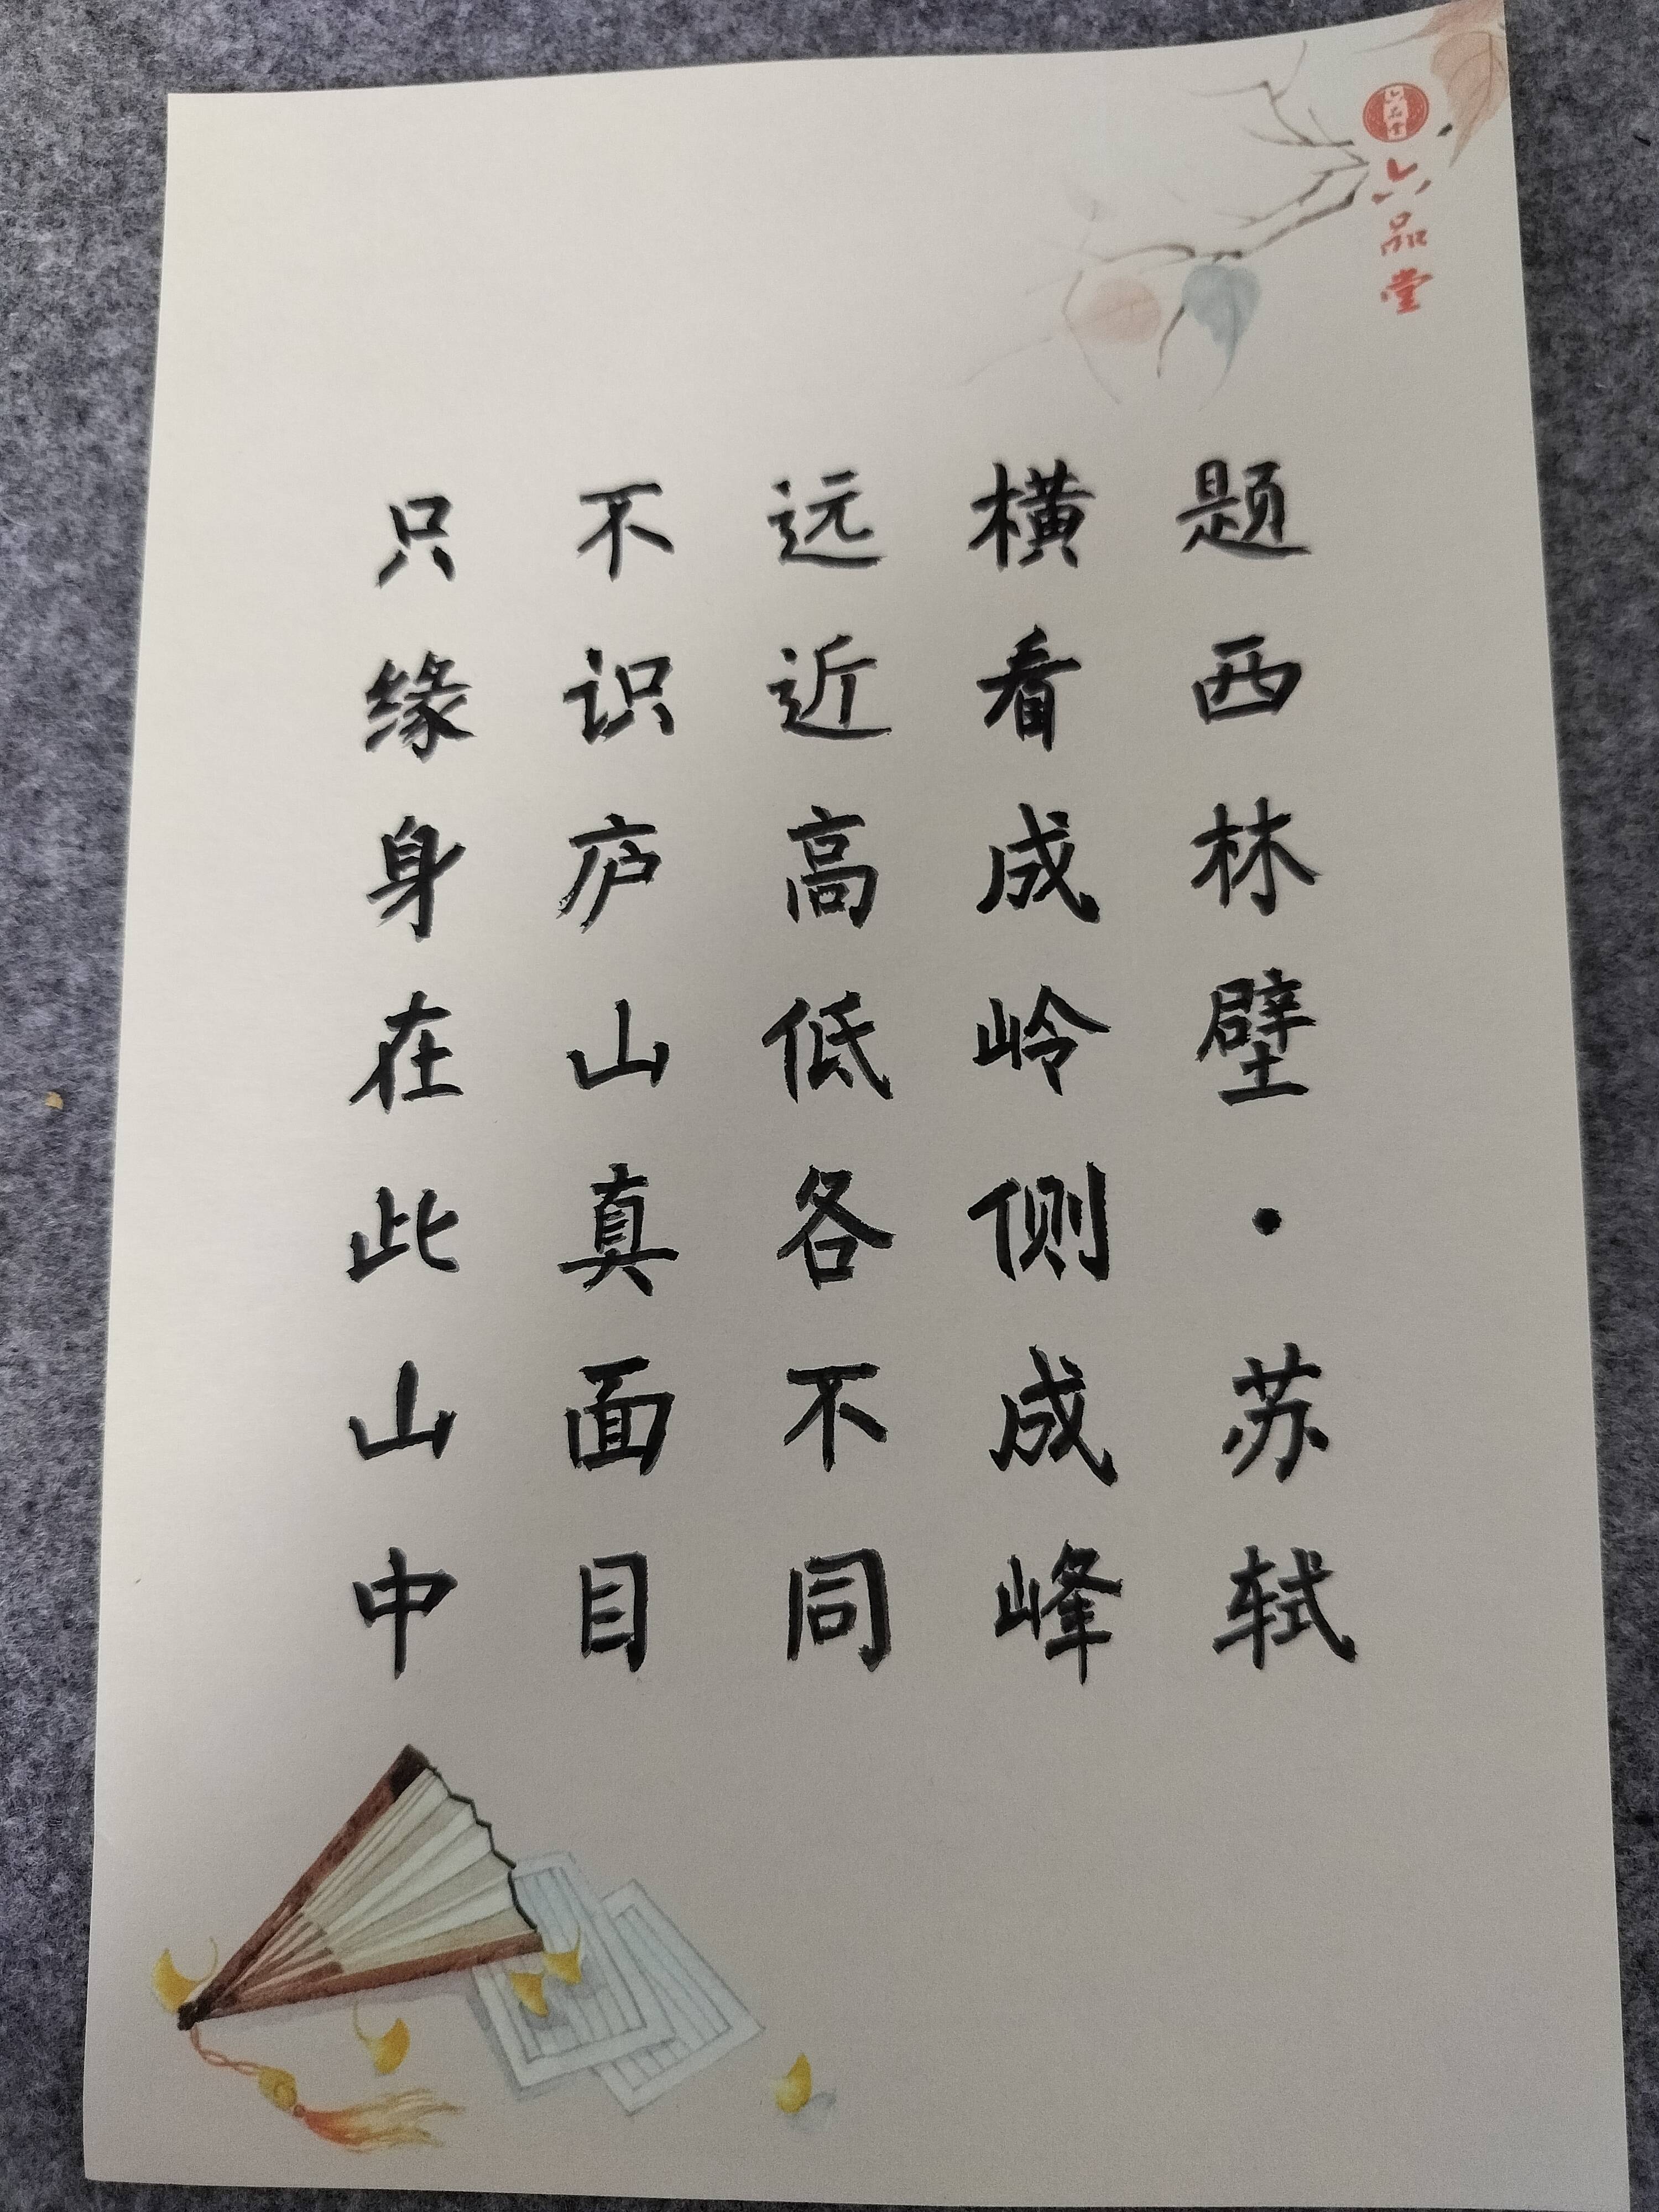 六品堂
六品堂
题西林壁·苏轼
横看成岭侧成峰
远近高低各不同
不识庐山真面目
只缘身在此山中